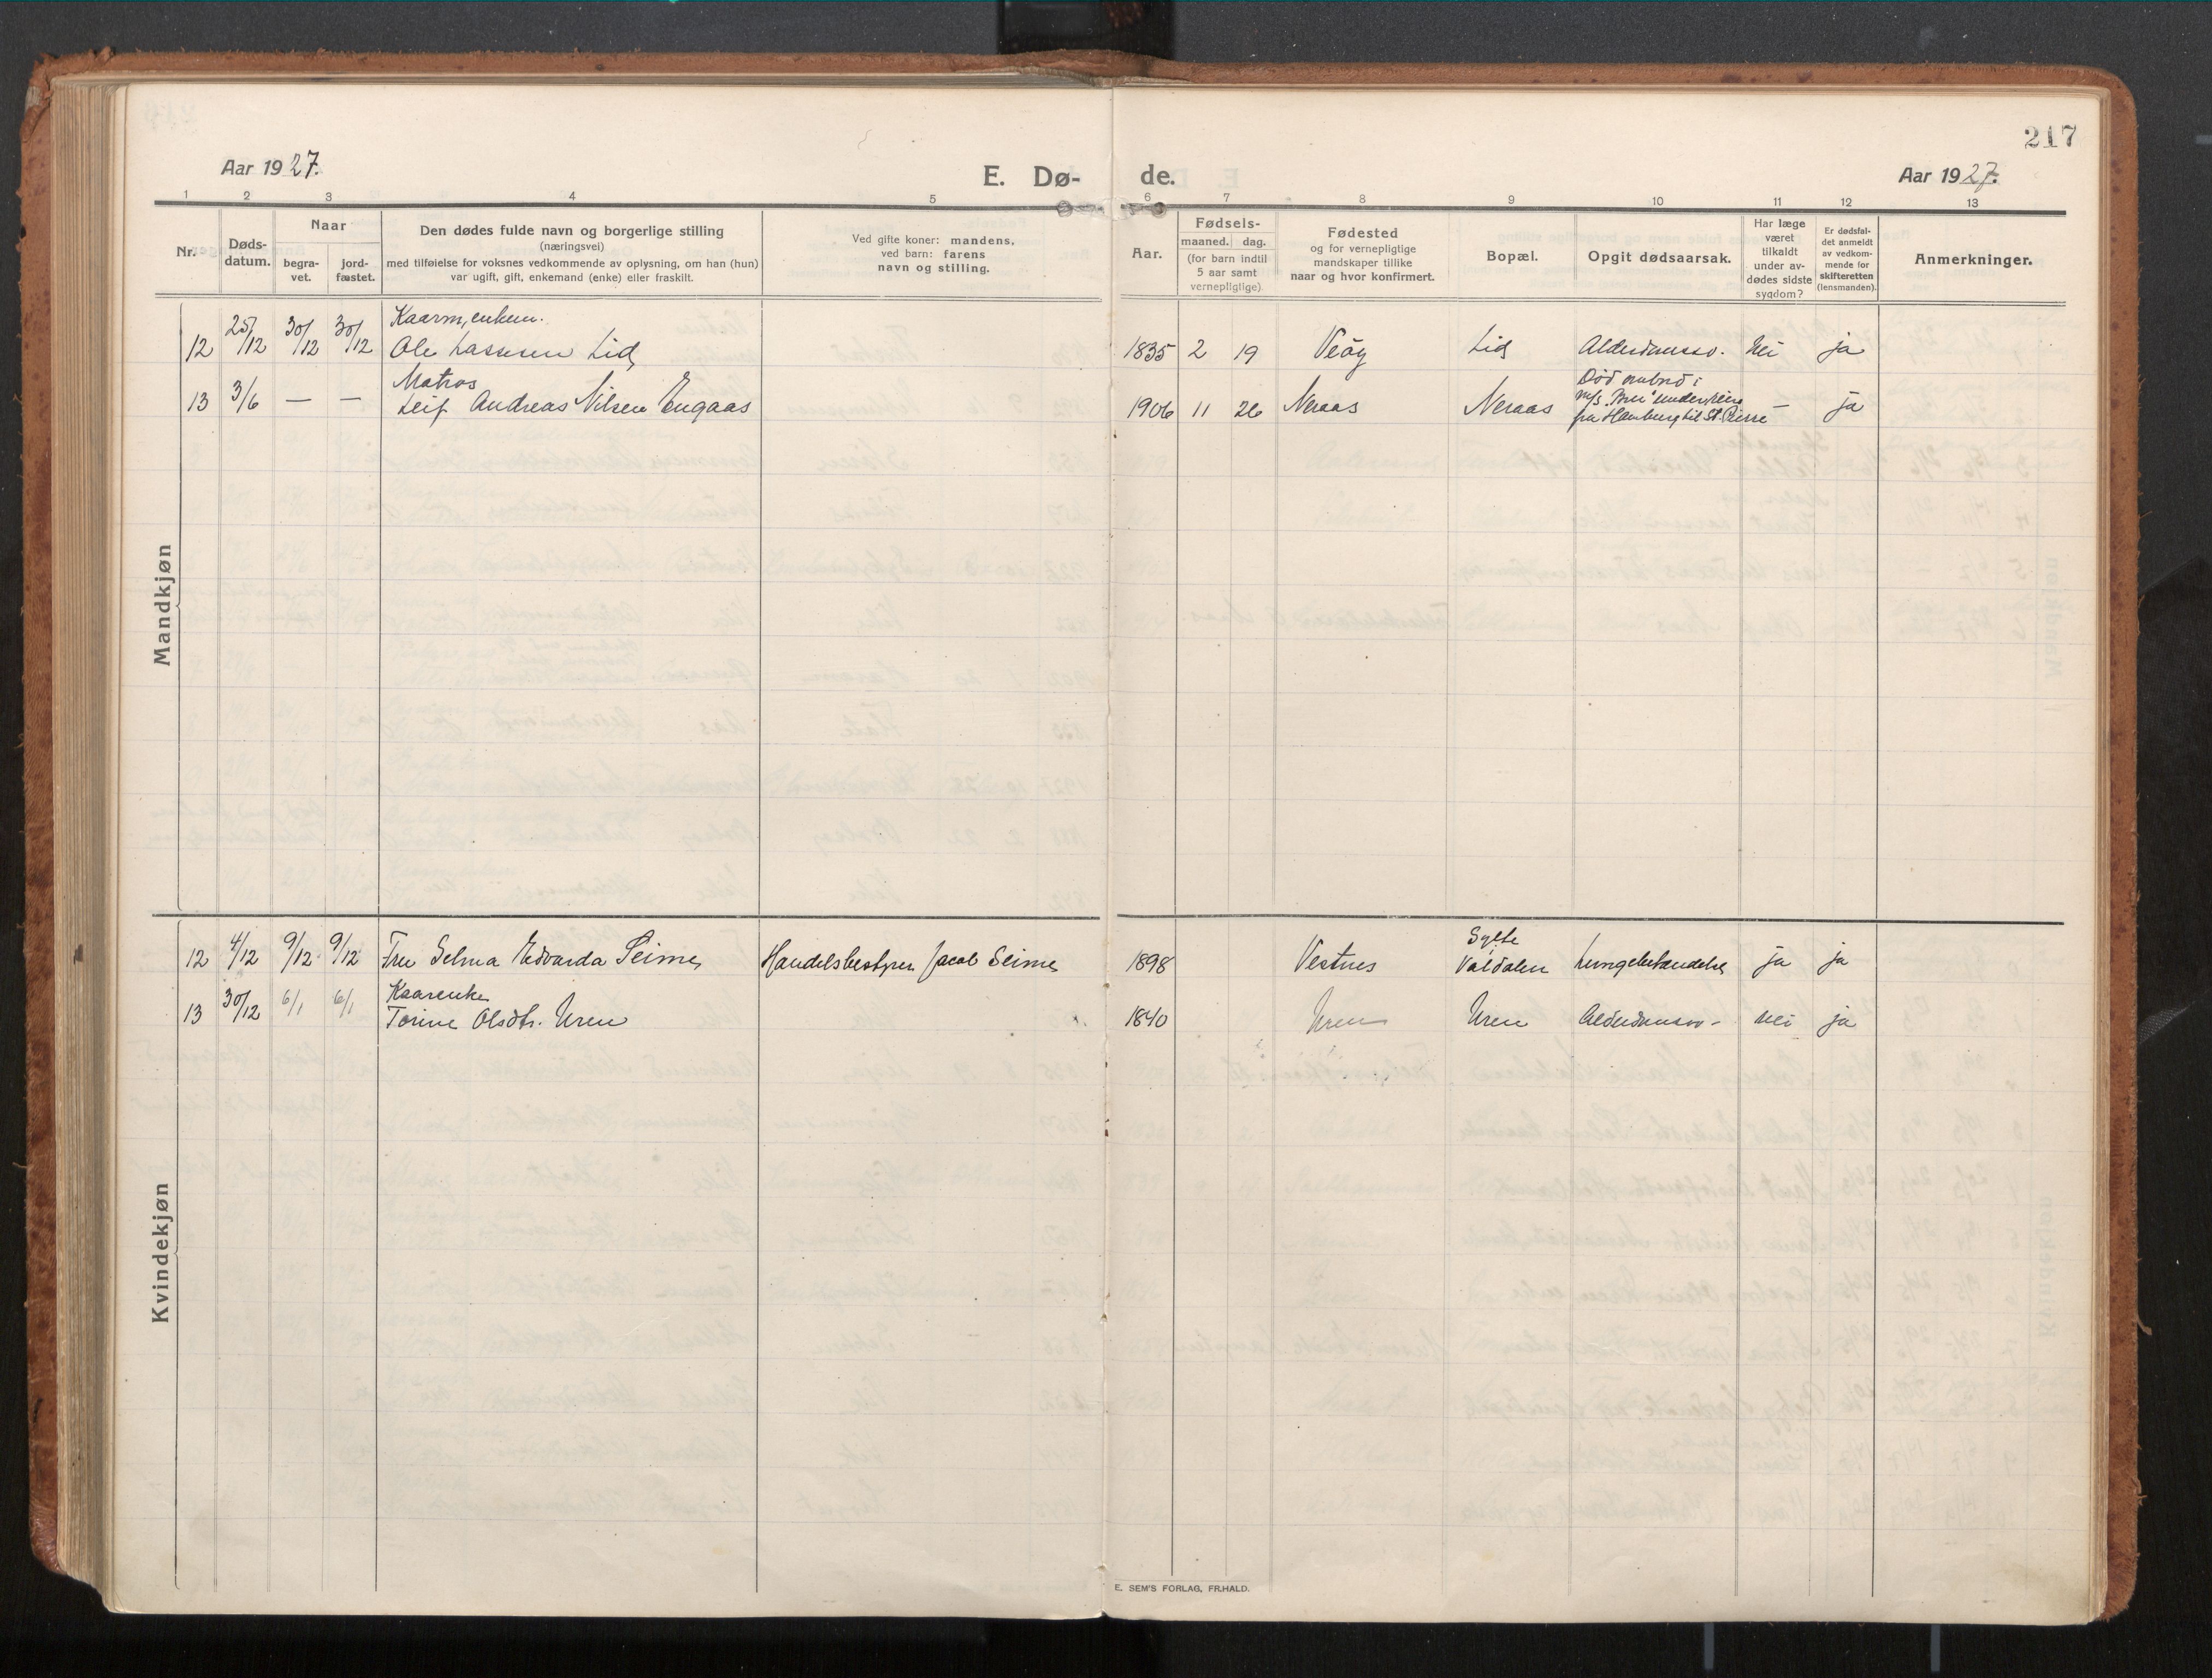 217
Aar 1927.
E. Dø-
de.
Aar 1927.
1 2 3 4 5 6 7 8 9 10 11 12 13
Nr.
Døds-
datum.
Naar
begra-
vet.
jord-
fæstet.
Den dødes fulde navn og borgerlige stilling
(næringsvei)
med tilføielse for voksnes vedkommende av oplysning, om han (hun)
var ugift, gift, enkemand (enke) eller fraskilt.
Ved gifte koner: mandens,
ved barn: farens
navn og stilling.
Aar.
Fødsels-
maaned. dag.
(for barn indtil
5 aar samt
vernepligtige)
Fødested
og for vernepligtige
mandskaper tillike
naar og hvor konfirmert.
Bopæl.
Opgit dødsaarsak.
Har læge
været
tilkaldt
under av-
dødes sidste
sygdom?
Er dødsfal-
det anmeldt
av vedkom-
mende for
skifteretten
(lensmanden).
Anmerkninger.
Mandkjøn
Kaarm, enkem.
12 25/12 30/12 30/12 Ole Lassesen Lid 1835 2 19 Veøy Lid Alderdomssv. Nei ja
Matros
13 3/6 — — Leif Andreas Nilsen Engaas 1906 11 26 Neraas Neraas — ja
Død ombord i
m/s "Bru" under reise
fra Hamburg til St. Pierre
Kvindekjøn
12 4/12 9/12 9/12 Fru Selma Edvarda Seime, Handelsbestyrer Jacob Seime, 1898 Vestnes
Sylte
Valdalen Lungebetændelse ja ja
Kaarenke
13 30/12 6/1 6/1 Torine Olsdtr. Uren 1840 Uren Uren Alderdomssv- Nei ja
E. SEM'S FORLAG, FR.HALD.